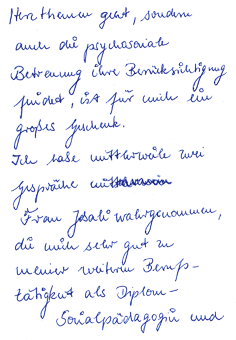 Herzthemen geht, sondern
auch die psychosoziale
Betreuung ihre Berücksichtigung
findet, ist für mich ein
großes Geschenk.
Ich habe mittlerweile zwei
Gespräche mit
Frau Jdali wahrgenommen,
die mich sehr gut zu
meiner weiteren Berufs-
tätigkeit als Diplom-
Sozialpädagogin und